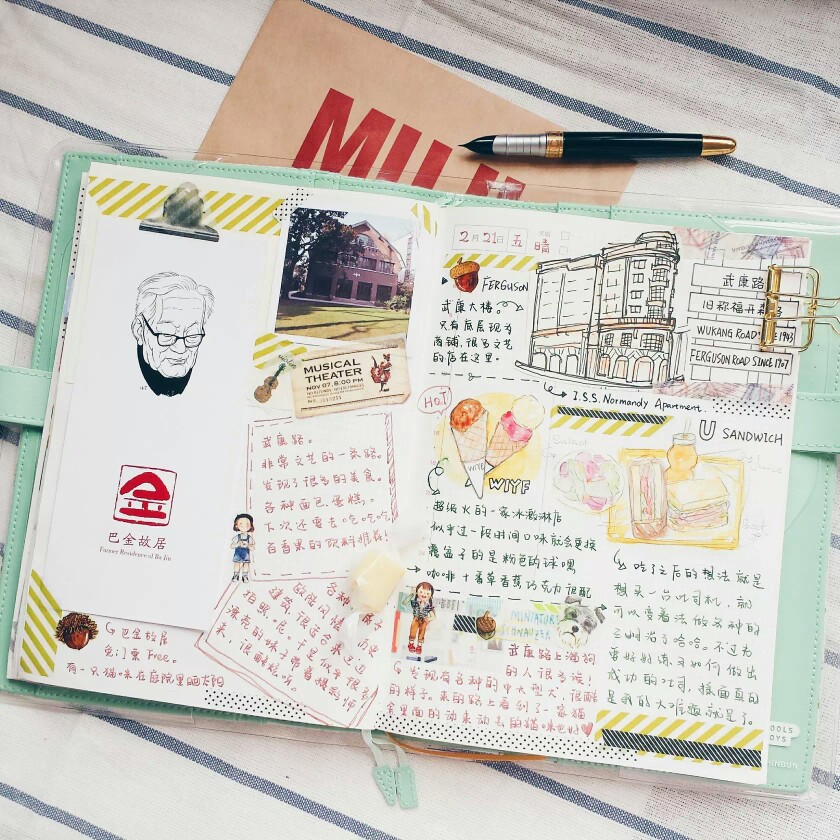 MUJI
巴金故居
Former Residence of Ba Jin
MUSICAL
THEATER
NOV 07, 8:00 PM
武康路。
非常文艺的一条路。
发现了很多的美食。
各种面包.蛋糕。
下次还要去吃吃吃
百香果的饮料推荐!
巴金故居
免门票 Free。
有一只猫咪在庭院里晒太阳
2月21日 五 晴
FERGUSON
武康大楼。
只有底层现为
商铺,很多文艺
的店在这里。
I.S.S. Normandy Apartment.
武康路
旧称福开森路
WUKANG ROAD SINCE 1943
FERGUSON ROAD SINCE 1907
HOT
WIYF
WIYF
超级火的一家冰激淋店
似乎过一段时间口味就会更换
覆盆子的是粉色的球嘿
咖啡+香草香蕉巧克力很配
U SANDWICH
Salad
吃了之后的想法就是
想买一台吐司机,就
可以变着法做各种的
三明治了哈哈。不过为
要好好练习如何做出
成功的吐司,接面真的
是我的大难题就是了。
MINIATURE
SCHNAUZER
武康路上遛狗
的人很多诶!
发现有各种的中大型犬,很酷
的样子。来的路上看到了一家猫
舍里面的动来动去的猫咪也好